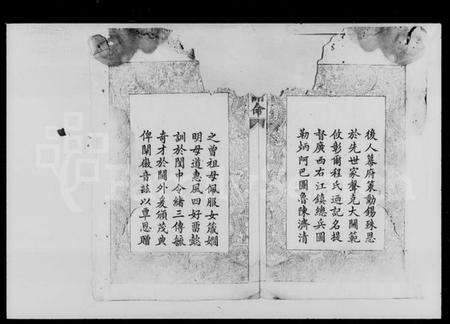 後人幕府策勳錫殊恩
於先世家聲克大閫範
攸彰爾程氏迺記名提
督廣西右江鎮總兵圖
勒炳阿巴圖魯陳濟清
之曾祖母佩服女箴嫺
明母道惠風四好善懿
訓於閨中令緒三傳毓
奇才於閫外爰頒茂典
俾闡徽音茲以覃恩贈